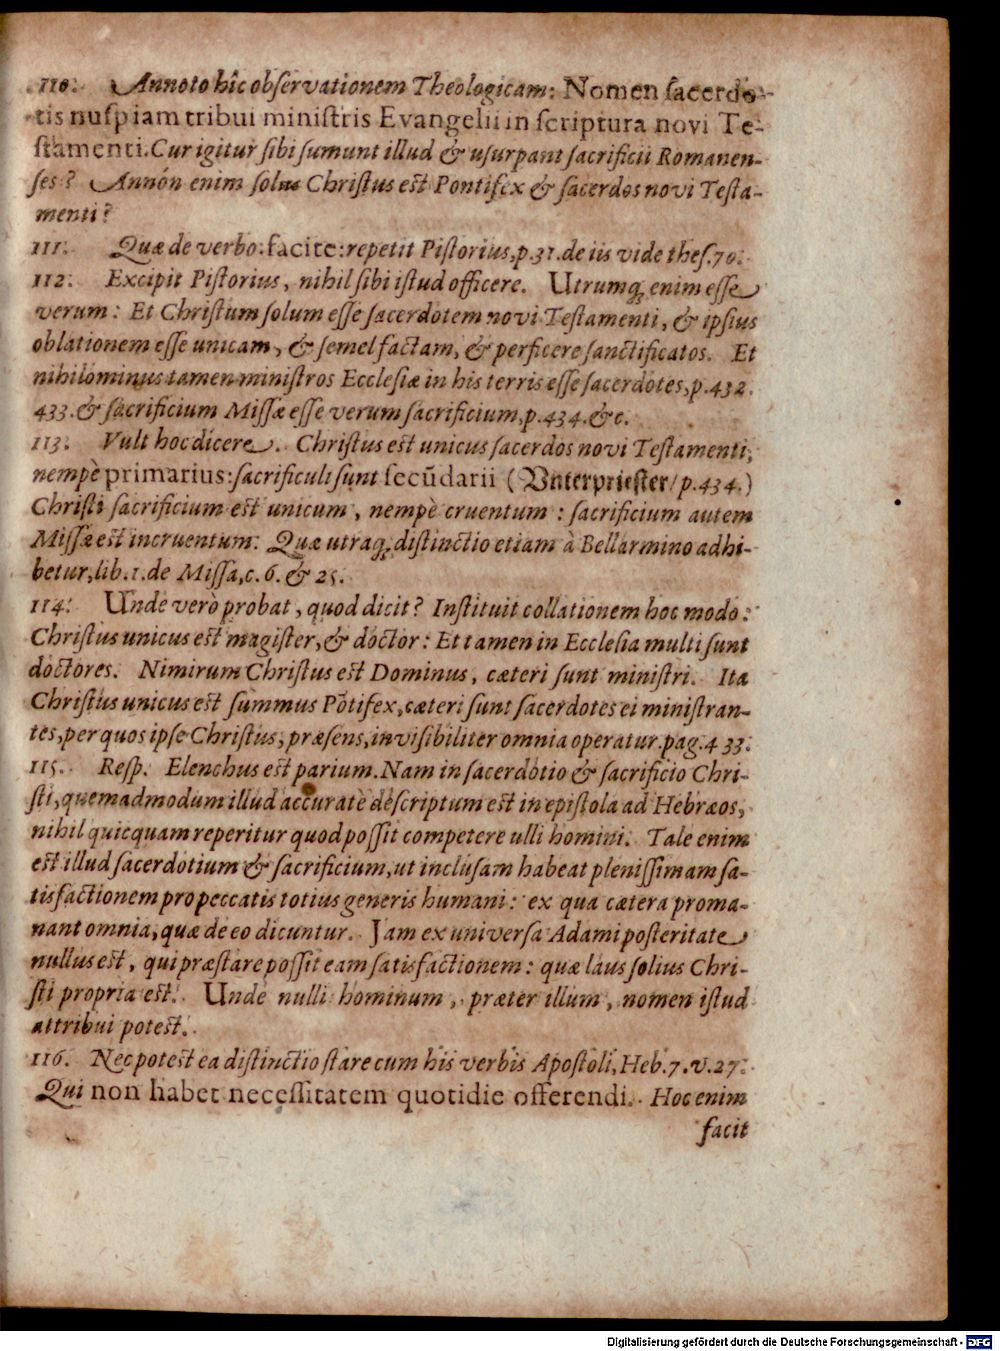 110. Annoto hîc observationem Theologicam: Nomen sacerdo-
tis nuspiam tribui ministris Evangelii in scriptura novi Te-
stamenti. Cur igitur sibi sumunt illud & usurpant sacrificii Romanen-
ses? Annón enim solus Christus est Pontifex & sacerdos novi Testa-
menti?
111. Quæ de verbo: facite: repetit Pistorius, p.31. de iis vide thes. 70.
112. Excipit Pistorius, nihil sibi istud officere. Utrumq; enim esse
verum: Et Christum solum esse sacerdotem novi Testamenti, & ipsius
oblationem esse unicam, & semel factam, & perficere sanctificatos. Et
nihilominus tamen ministros Ecclesiæ in his terris esse sacerdotes, p.432.
433. & sacrificium Missæ esse verum sacrificium, p.434. &c.
113. Vult hoc dicere. Christus est unicus sacerdos novi Testamenti,
nempè primarius: sacrificuli sunt secũdarii (Vnterpriester/ p.434.)
Christi sacrificium est unicum, nempè cruentum: sacrificium autem
Missæ est incruentum: Quæ utraq; distinctio etiam à Bellarmino adhi-
betur, lib.1. de Missa, c.6. & 25.
114. Unde verò probat, quod dicit? Instituit collationem hoc modo:
Christus unicus est magister, & doctor: Et tamen in Ecclesia multi sunt
doctores. Nimirum Christus est Dominus, cæteri sunt ministri. Ita
Christus unicus est summus Põtifex, cæteri sunt sacerdotes ei ministran-
tes, per quos ipse Christus, præsens, invisibiliter omnia operatur. pag.433.
115. Resp. Elenchus est parium. Nam in sacerdotio & sacrificio Chri-
sti, quemadmodum illud accuratè descriptum est in epistola ad Hebræos,
nihil quicquam reperitur quod possit competere ulli homini. Tale enim
est illud sacerdotium & sacrificium, ut inclusam habeat plenissimam sa-
tisfactionem pro peccatis totius generis humani: ex qua cætera proma-
nant omnia, quæ de eo dicuntur. Jam ex universa Adami posteritate
nullus est, qui præstare possit eam satisfactionem: quæ laus solius Chri-
sti propria est. Unde nulli hominum, præter illum, nomen istud
attribui potest.
116. Nec potest ea distinctio stare cum his verbis Apostoli, Heb.7.v.27.
Qui non habet necessitatem quotidie offerendi. Hoc enim
facit
Digitalisierung gefördert durch die Deutsche Forschungsgemeinschaft - DFG